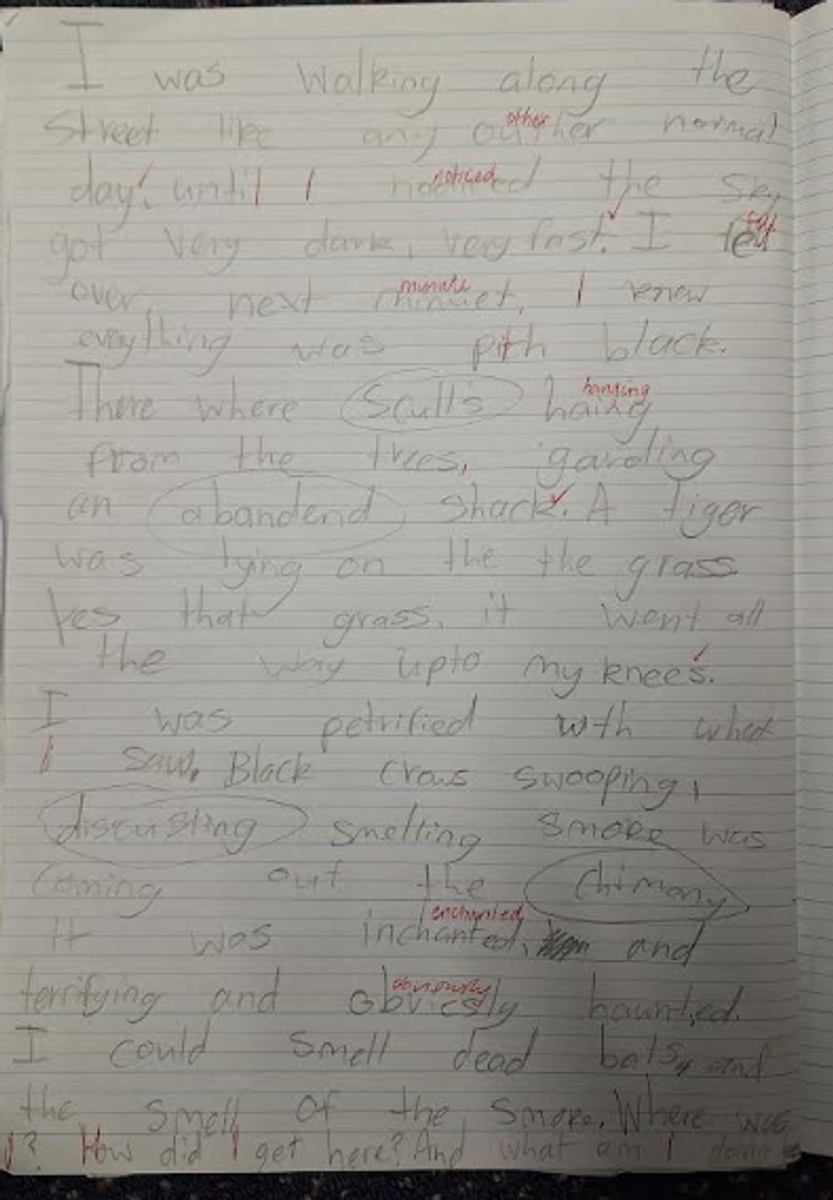 I was walking along the
other
Street like any outher normal
noticed
day, until I noticed the sky
got very dark, very fast. I fell
over, next minuet, I knew
minute
evrything was pith black.
hanging
There where Scull's haing
from the trees, garding
an abandend shack. A tiger
was lying on the the grass
Yes that grass. it went all
the way upto my knees.
I was petrified wth what
I saw. Black crows swooping,
discusting smelling smoke was
coming out the chimany
enchanted
it was inchanted, and
obviously
terrifying and obvicsly haunted.
I could smell dead bats, and
the smell of the smoke. Where was
I? How did I get here? And what am I doing